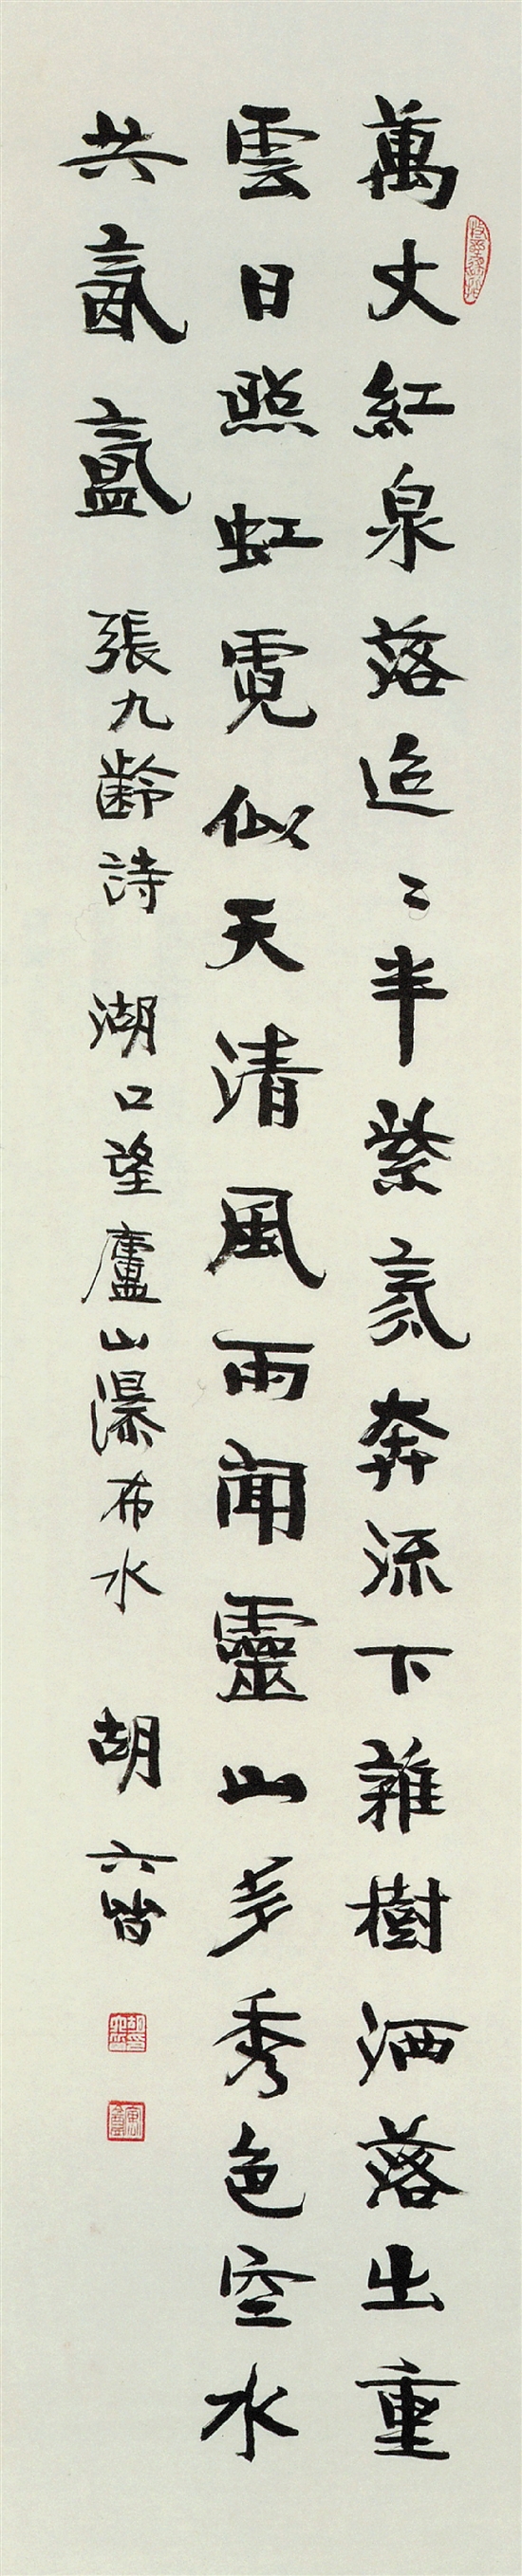 萬丈紅泉落迢〻半紫氛奔流下雜樹洒落出重
雲日照虹霓似天清風雨聞靈山多秀色空水
共氤氳 張九齡詩 湖口望廬山瀑布水 胡六皆